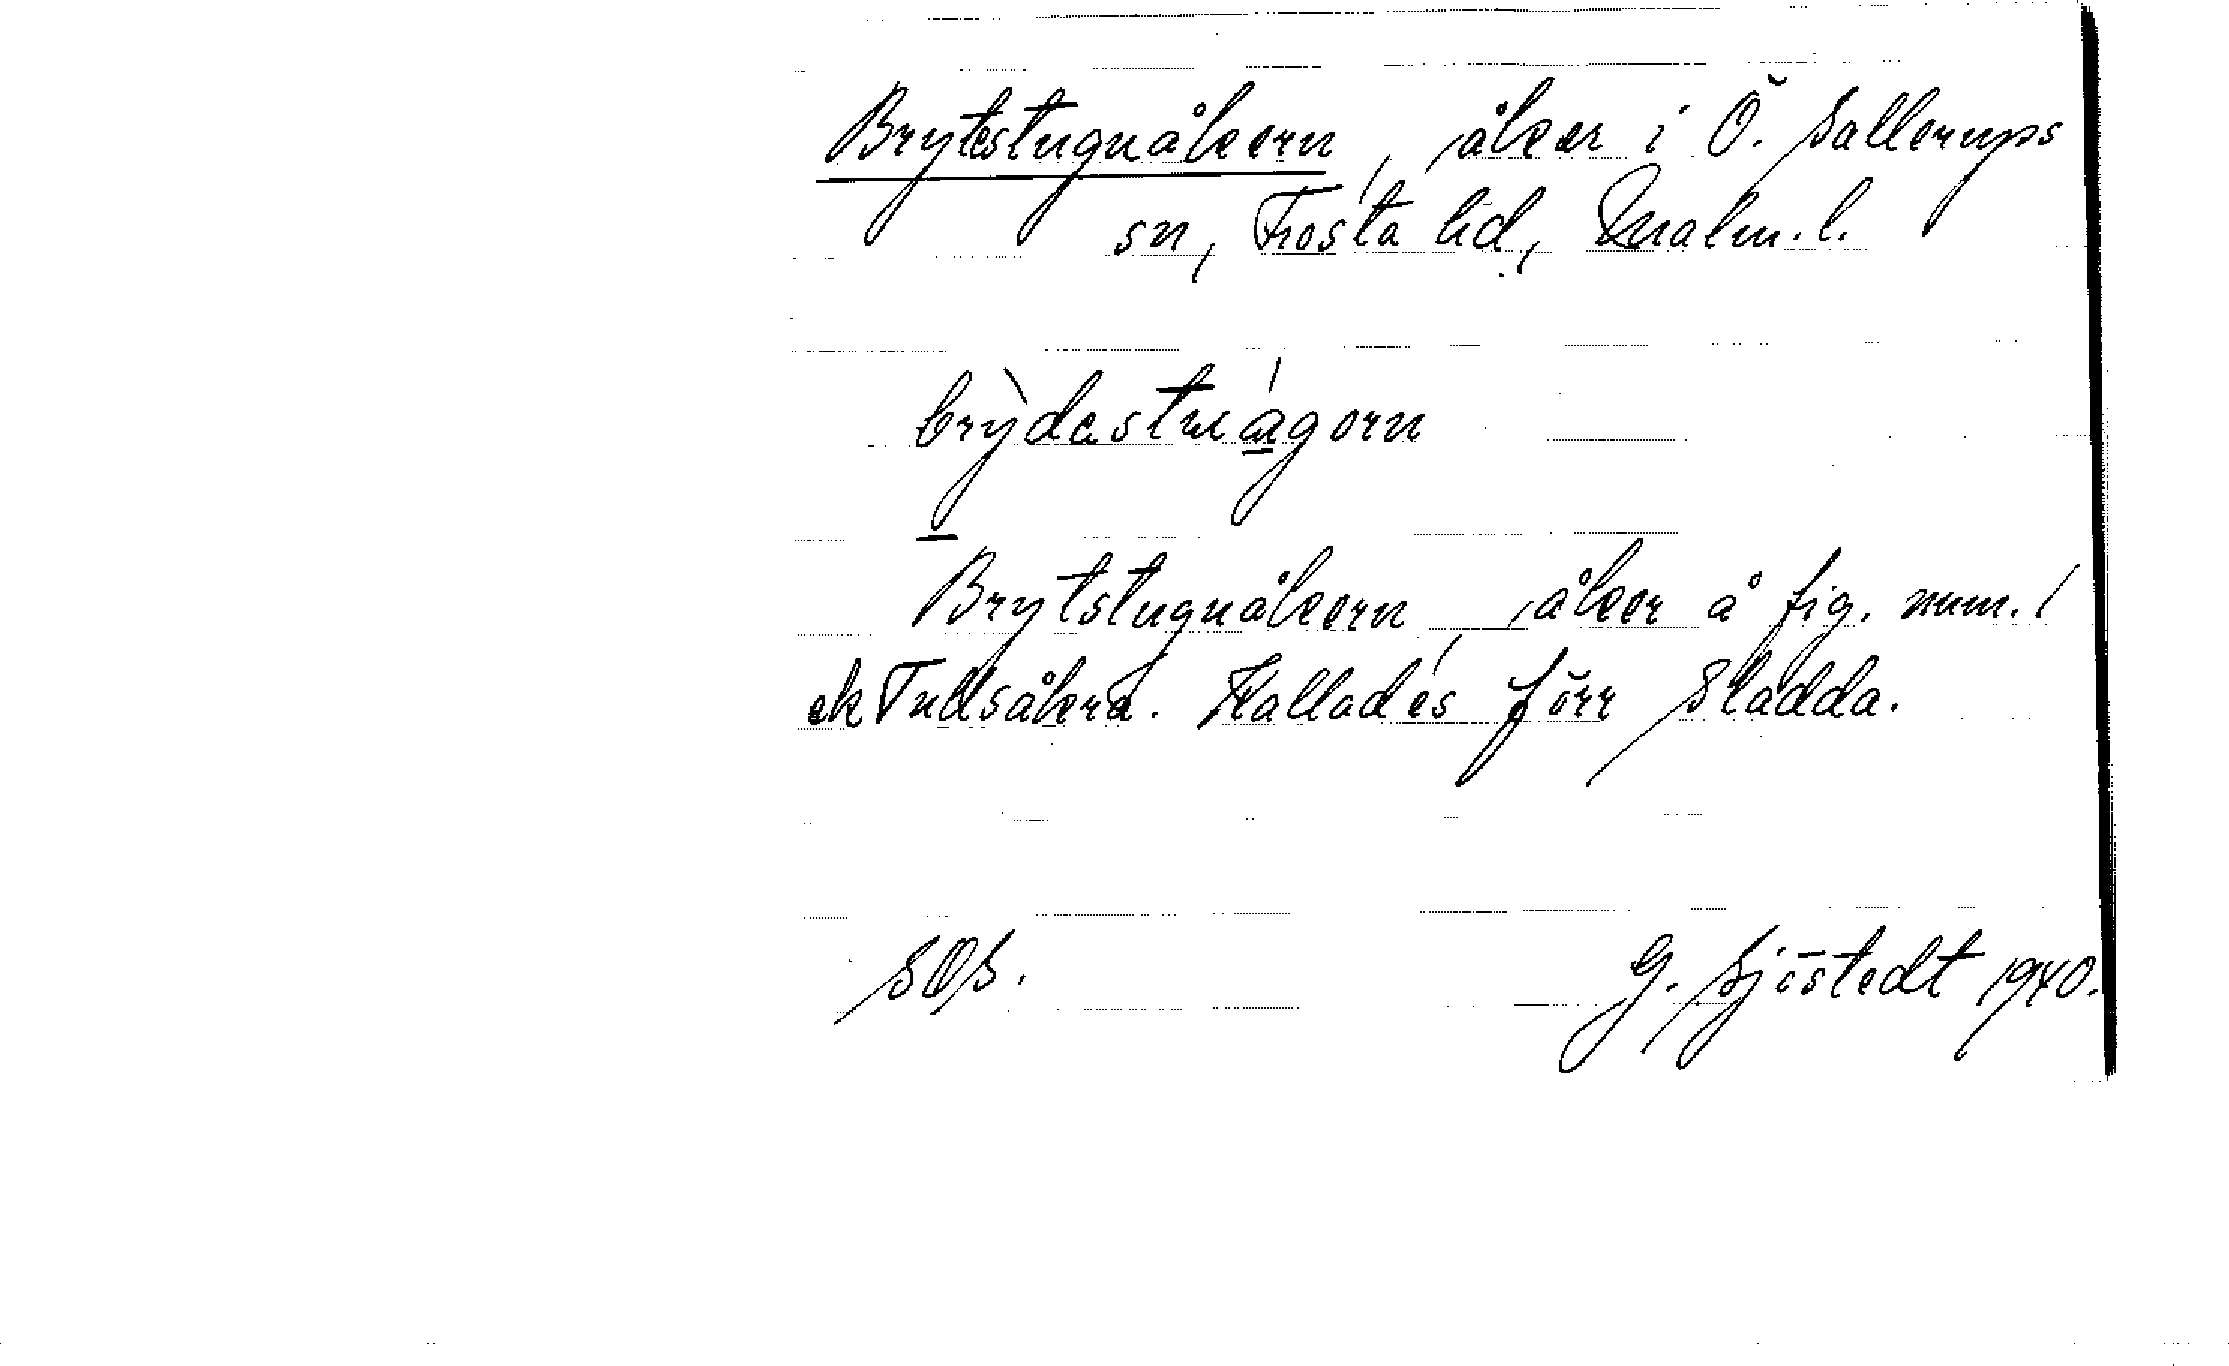 Brytestugnåkern, åker i Ö. Sallerups
sn, Frosta hd, Malm. l.
brỳdastuágorn
Brytstugnåkern, åker å fig. num. 1
ek Tullsåkra. Kallades förr Sladda.
SOS.
G. Sjöstedt 1940.